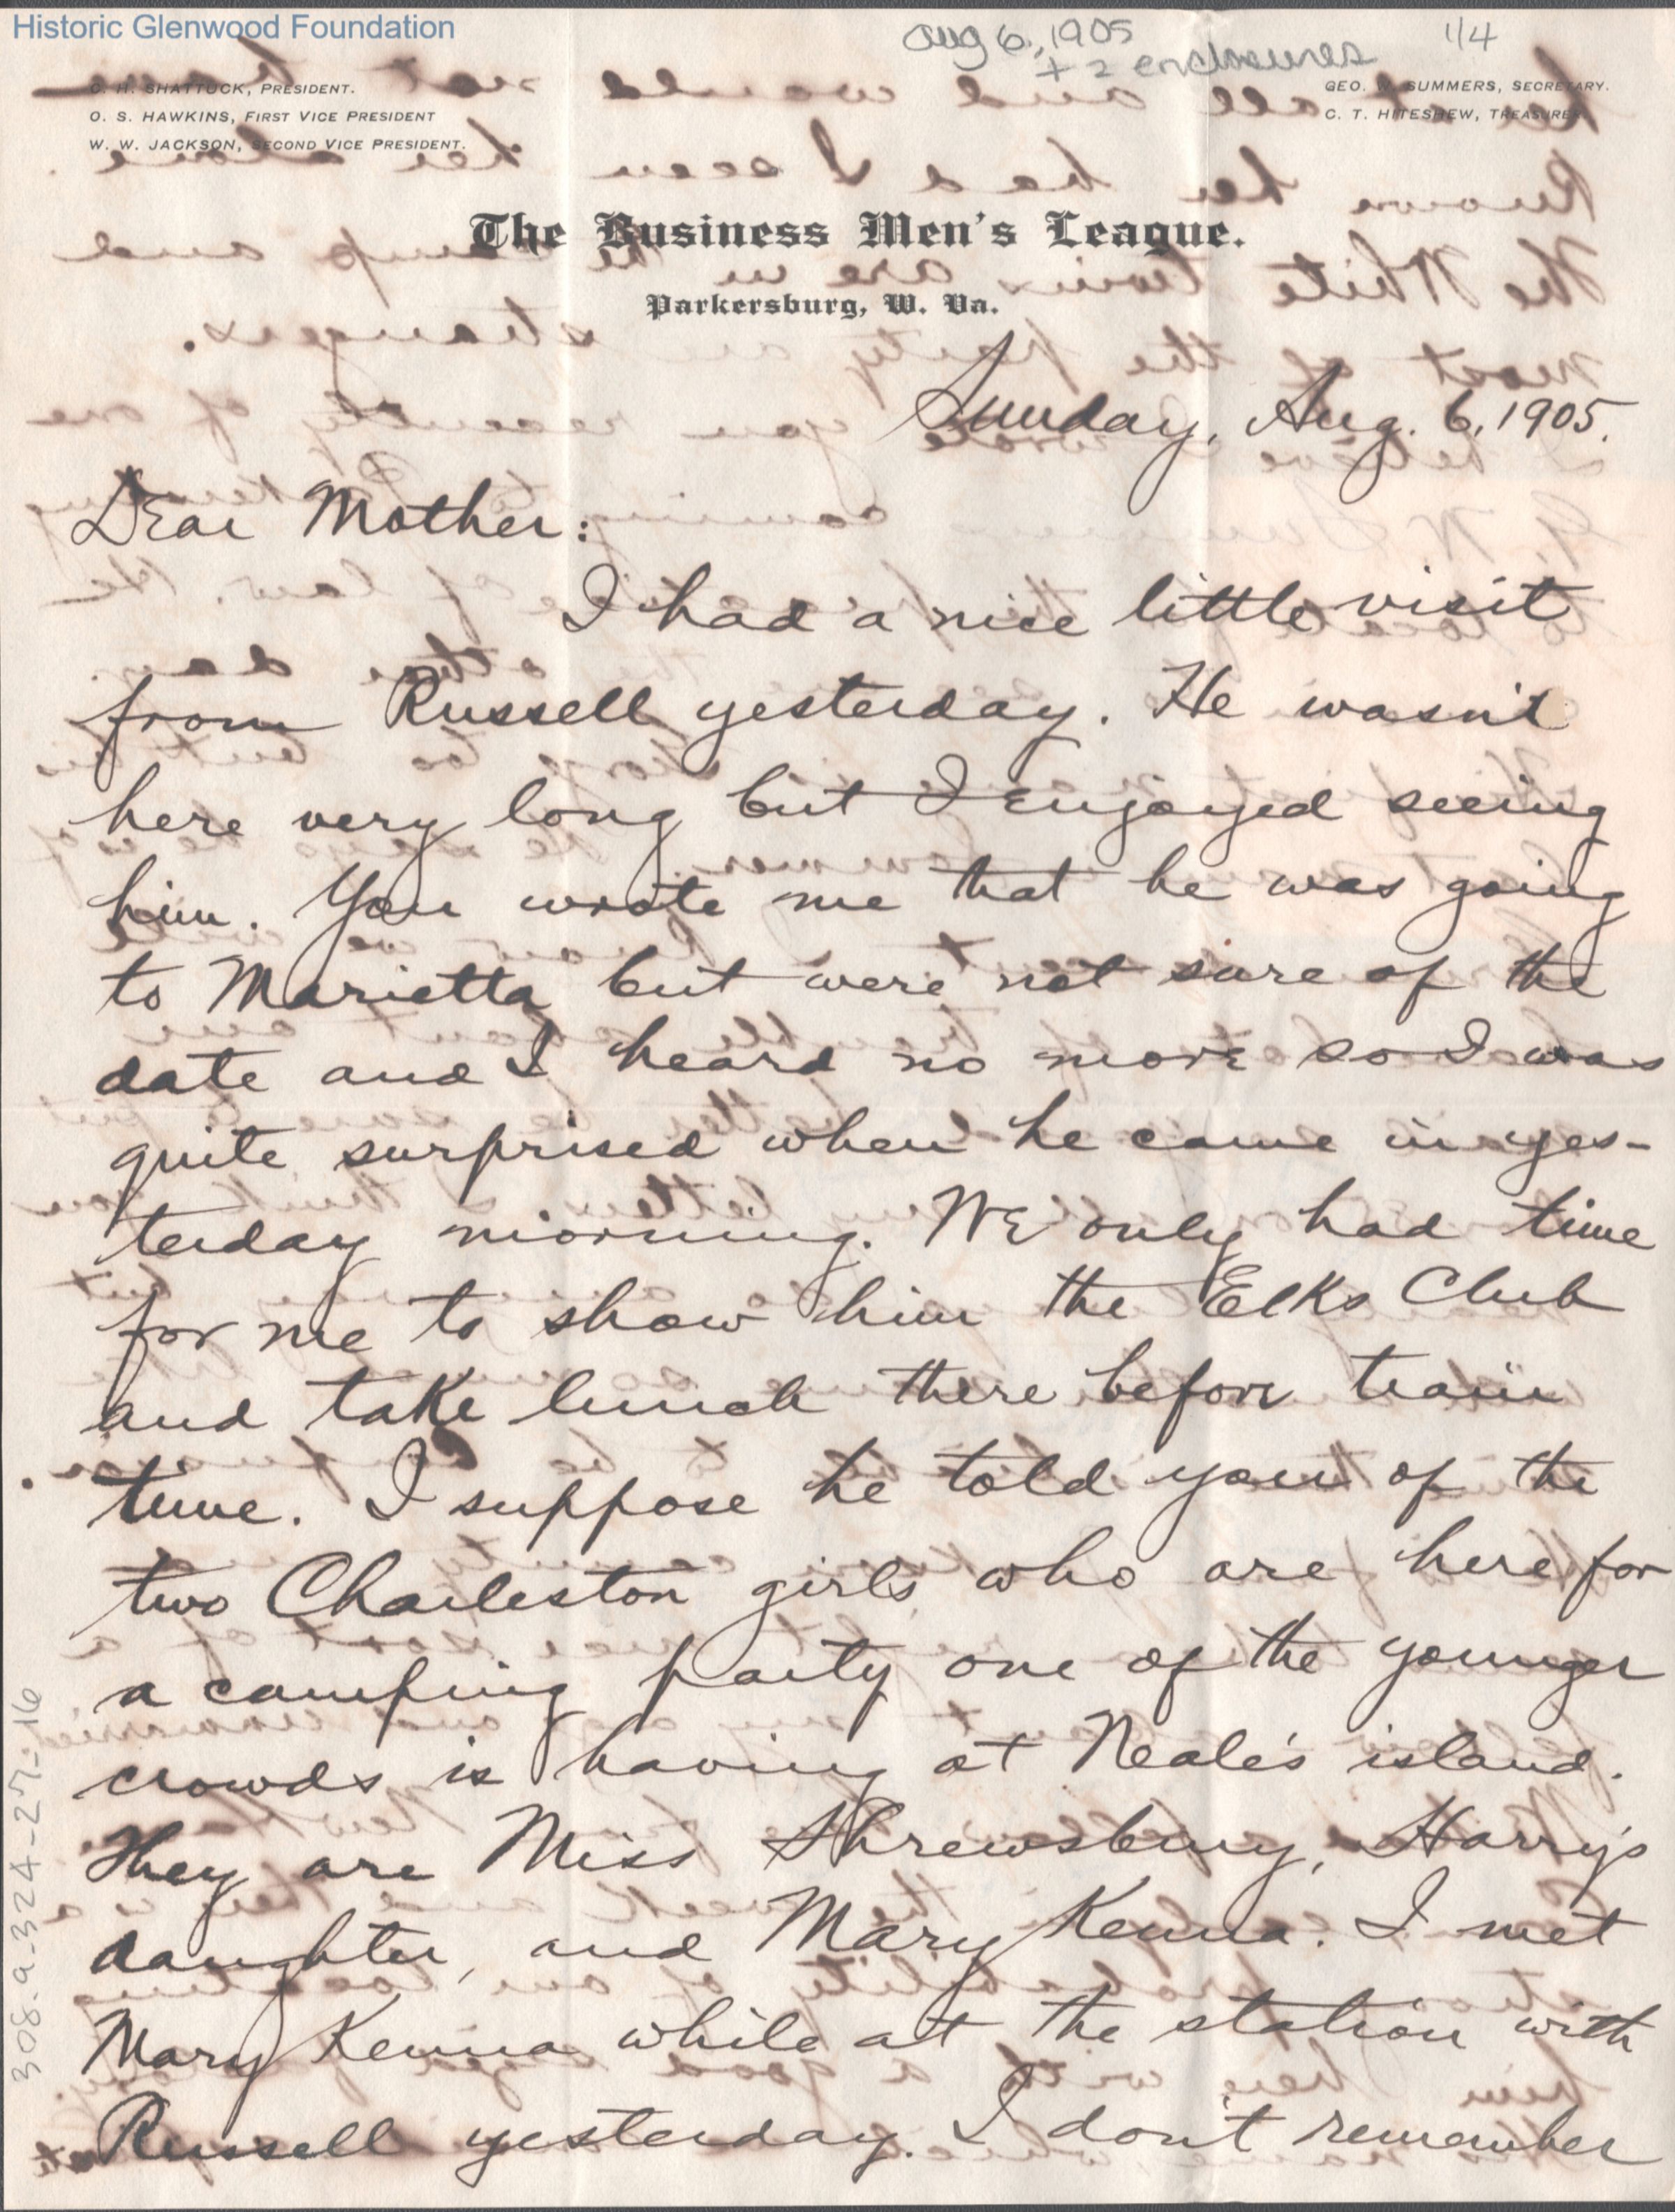 Historic Glenwood Foundation
Aug 6, 1905 1/4
+ 2 enclosures
C. H. SHATTUCK, PRESIDENT.
O. S. HAWKINS, FIRST VICE PRESIDENT
W. W. JACKSON, SECOND VICE PRESIDENT.
GEO. W. SUMMERS, SECRETARY.
C. T. HITESHEW, TREASURER.
The Business Men's League.
Parkersburg, W. Va.
Sunday, Aug. 6, 1905.
Dear Mother:
I had a nice little visit
from Russell yesterday. He wasn't
here very long but I enjoyed seeing
him. You wrote me that he was going
to Marietta but were not sure of the
date and I heard no more so I was
quite surprised when he came in yes-
terday morning. We only had time
for me to show him the Elks Club
and take lunch there before train
time. I suppose he told you of the
two Charleston girls who are here for
a camping party one of the younger
crowds is having at Neale's island.
They are Miss Shrewsbury, Harry's
daughter, and Mary Kenna. I met
Mary Kenna while at the station with
Russell yesterday. I don't remember
308.a.324-27-16